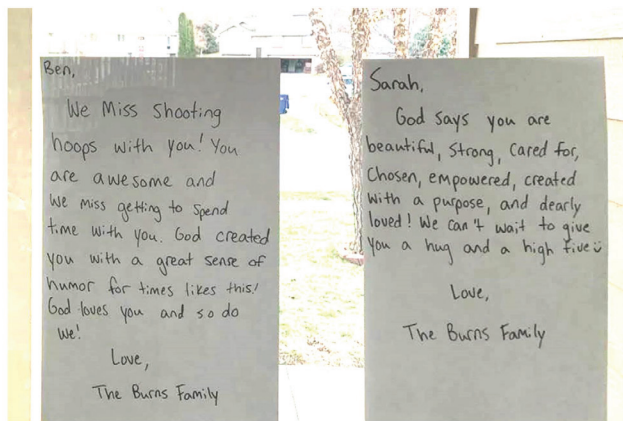 Ben,
We Miss Shooting
hoops with you! You
are awesome and
we miss getting to spend
time with you. God created
you with a great sense of
humor for times likes this!
God loves you and so do
we!
Love,
The Burns Family
Sarah,
God says you are
beautiful, Strong, Cared for,
Chosen, empowered, created
with a purpose, and dearly
loved! We can't wait to give
you a hug and a high five ü
Love,
The Burns Family